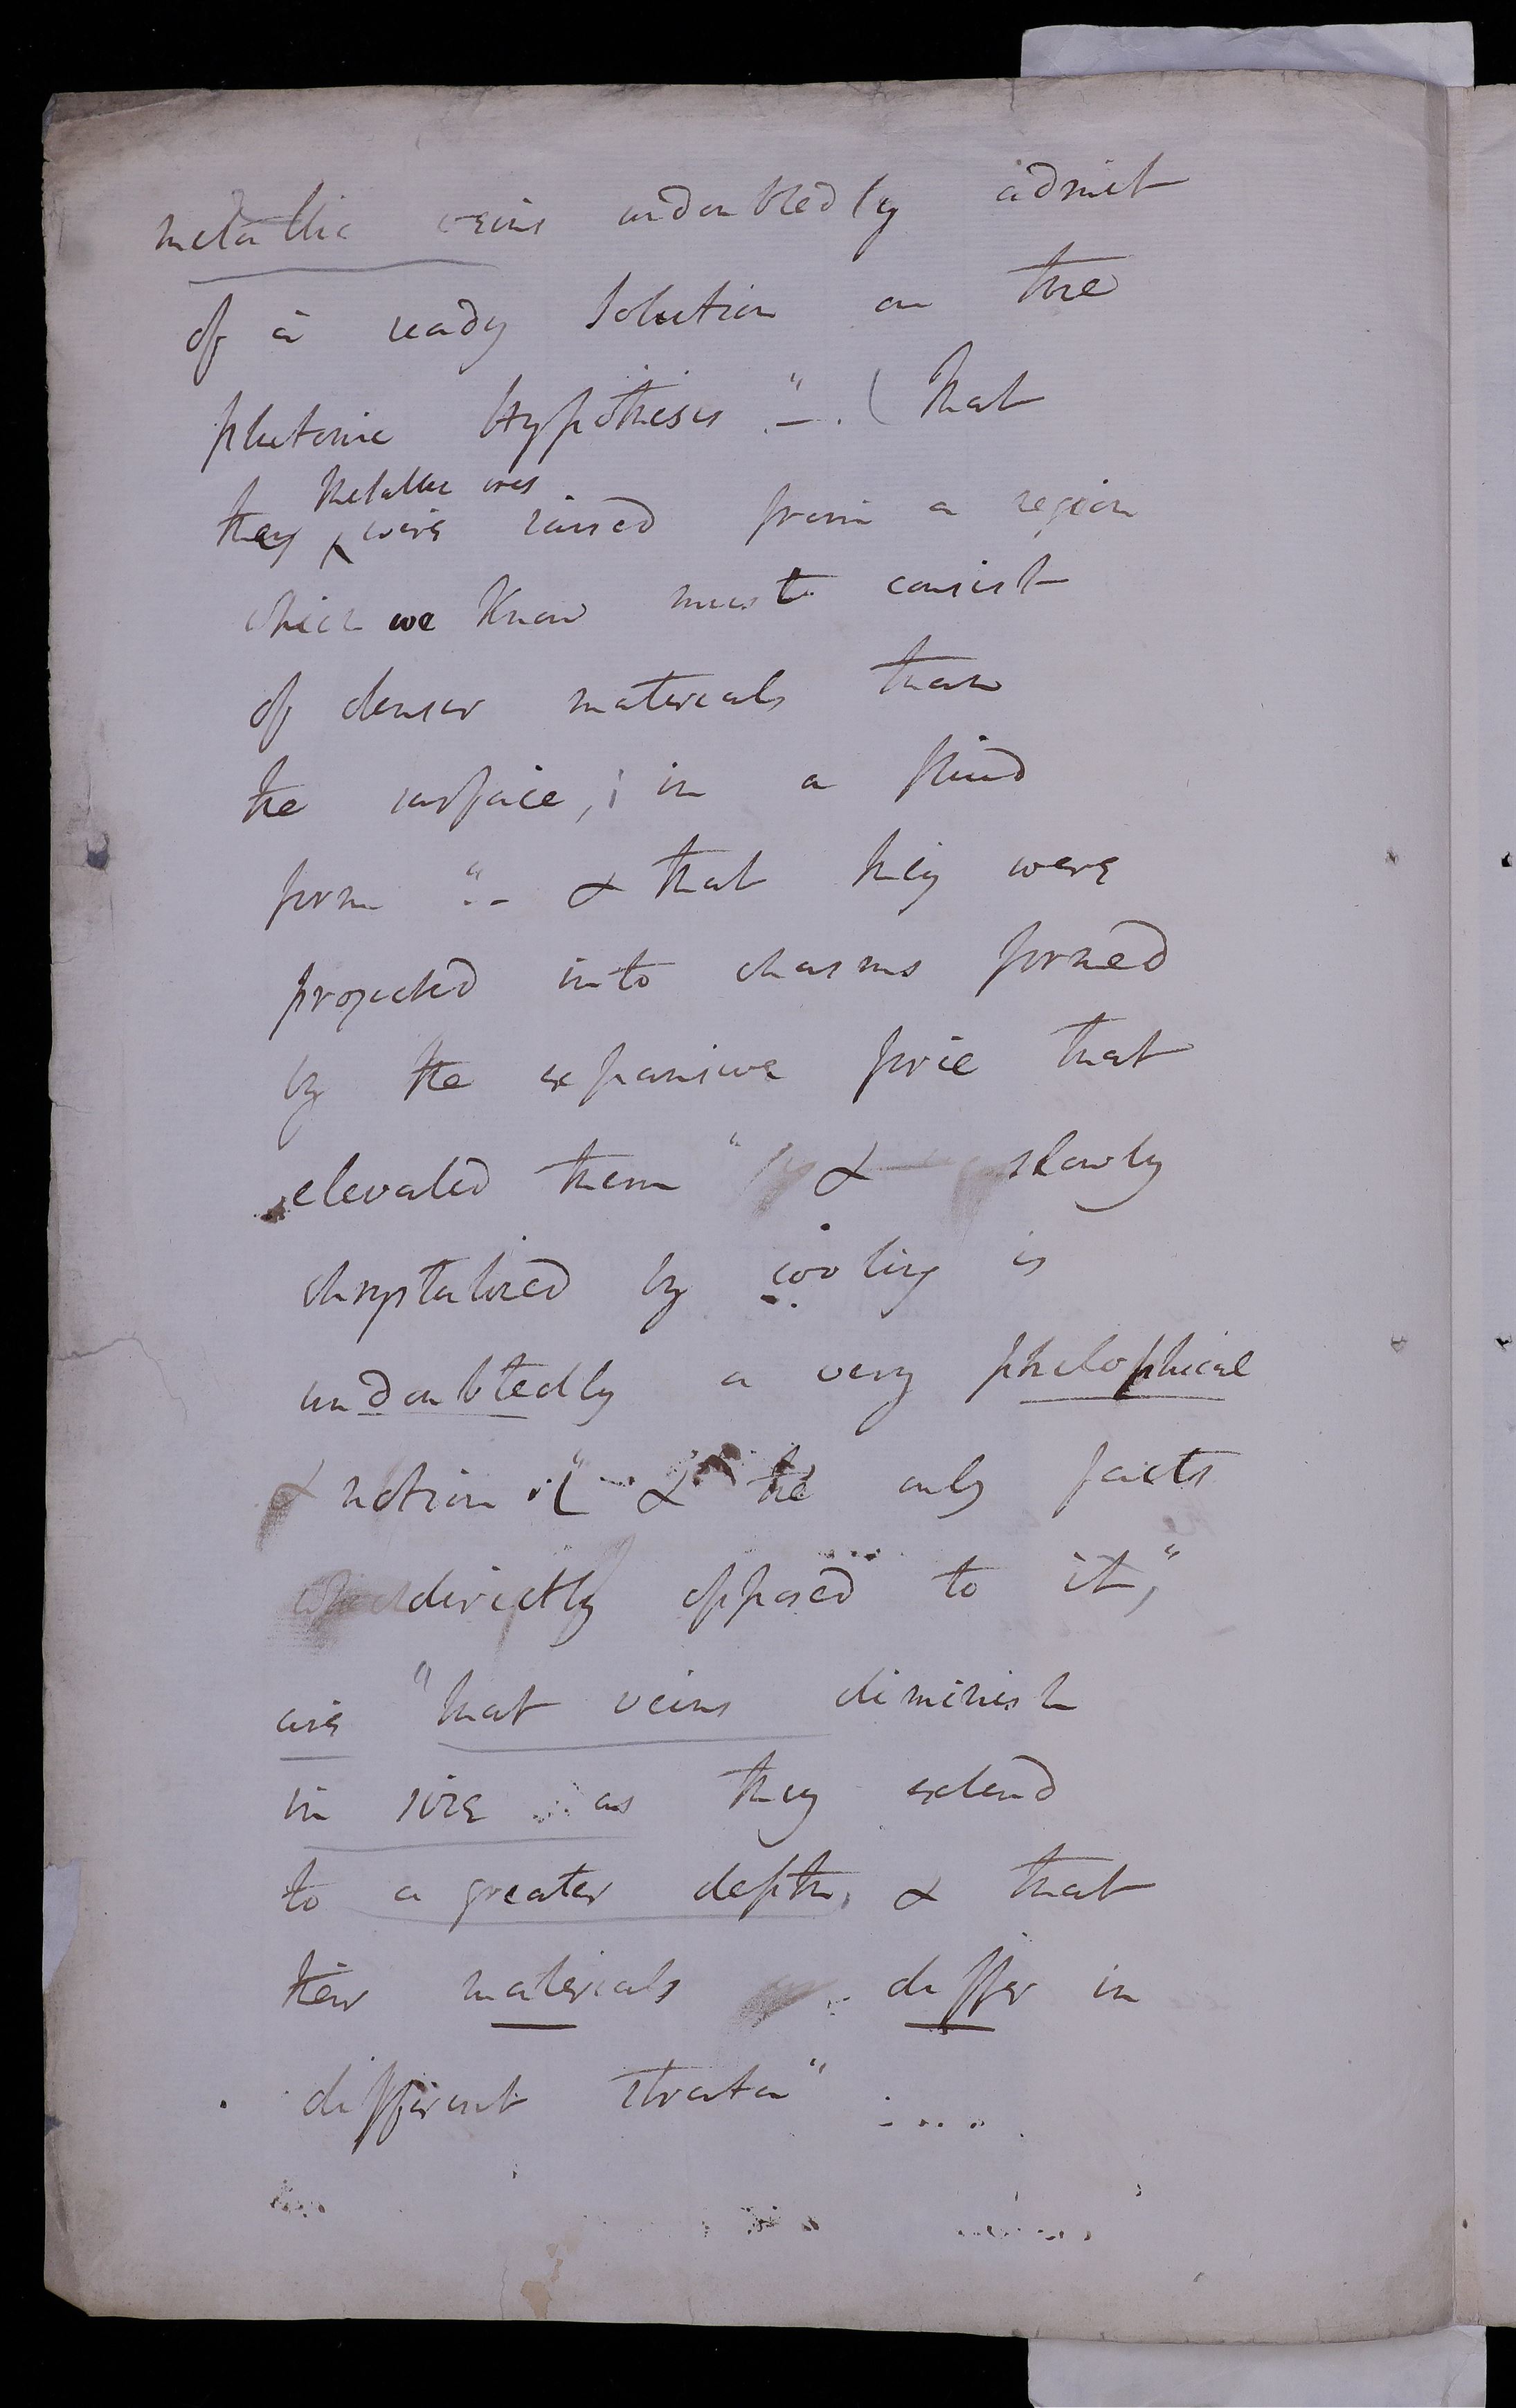 metallic veins undoubtedly admit
of a ready solution on the
plutonic Hypothesis " - . ( That
Metallic ores
they were raised from a region
which we know must consist
of denser materials than
the surface, in a fluid
form " - & that they were
projected into chasms formed
by the expansive force that
elevated them " & slowly
chrystalized by cooling is
undoubtedly a very philophical
& notion " ( - & the only facts
directly opposed to it, "
are "that veins diminish
in size as they extend
to a greater depth, & that
their materials differ in
different strata" ....